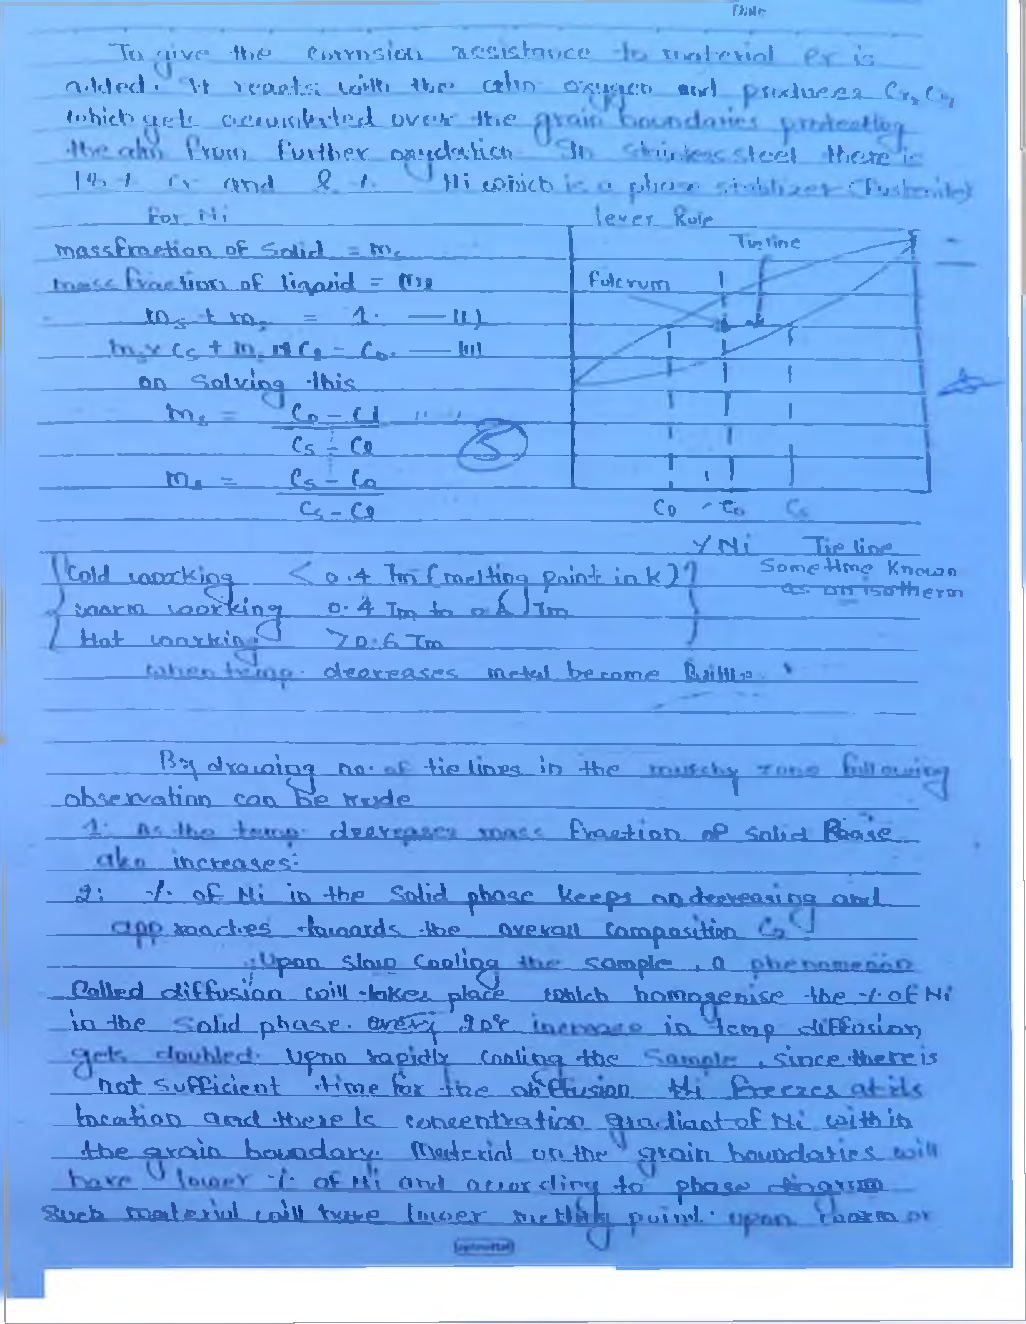 Date
To give the corrosion assistance to material Cr is
added. It reacts with the atm oxygen and produces
which gets accumulated over the grain boundaries protecting
the atm from further oxydation In stainless steel there is
18 % Cr and 8 % Ni which is a phase stablizer
For Ni
lever Rule
massfraction of solid = ms
mass fraction of liquid = ml
ms + ml = 1. — (I)
on solving this
ms = Co - Cl
Cs - Cl
5
ml = Cs - Co
Cs - Cl
Tie line
Fulcrum
Co
Cs
% Ni
Tie line
Sometime known
as an isotherm
Cold working < 0.4 Tm (melting point in k)
warm working 0.4 Tm to 0.6 Tm
Hot working >0.6 Tm
when temp. decreases metal become
By drawing no. of tie lines in the mushy zone following
observation can be made
1: As the temp decreases mass fraction of solid Phase
also increases:
2: % of Ni in the solid phase keeps on decreasing and
approaches towards the overall composition Co
Upon slow cooling the sample, a phenomenon
called diffusion will takes place which homogenise the % of Ni
in the solid phase. every increase in temp diffusion
gets doubled. Upon rapidly cooling the sample, since there is
not sufficient time for the diffusion Ni freezes at its
location and there is concentration gradiant of Ni within
the grain boundary. Material on the grain boundaries will
have lower % of Ni and according to phase diagram
such material will have lower melting point. upon warm or